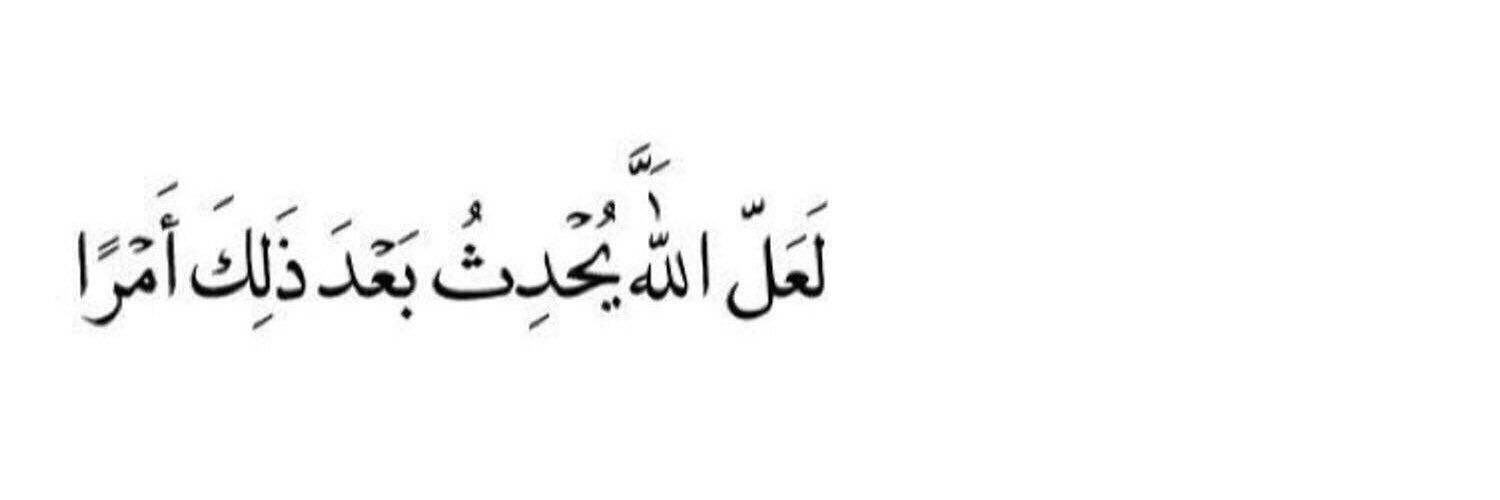 لَعَلّ اللّٰهََّ يُحْدِثُ بَعْدَ ذَلِكَ أَمْرًا